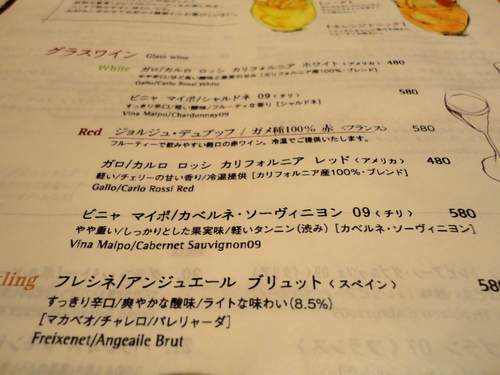 グラスワイン Glass wine
White ガロ/カルロ ロッシ カリフォルニア ホワイト〈アメリカ〉 480
やや辛口/ほど良い酸味と果実の甘み [カリフォルニア産100%・ブレンド]
Gallo/Carlo Rossi White
ビニャ マイポ/シャルドネ 09〈チリ〉 580
すっきり辛口/軽い酸味/フルーティな香り [シャルドネ]
Vina Maipo/Chardonnay09
Red ジョルジュ・デュブッフ / ガメ種100% 赤 〈フランス〉 580
フルーティーで飲みやすい軽口の赤ワイン。冷温でご提供いたします。
ガロ/カルロ ロッシ カリフォルニア レッド〈アメリカ〉 480
軽い/チェリーの甘い香り/冷温提供 [カリフォルニア産100%・ブレンド]
Gallo/Carlo Rossi Red
ビニャ マイポ/カベルネ・ソーヴィニヨン 09〈チリ〉 580
やや重い/しっかりとした果実味/軽いタンニン(渋み) [カベルネ・ソーヴィニヨン]
Vina Maipo/Cabernet Sauvignon09
ling フレシネ/アンジュエール ブリュット〈スペイン〉 580
すっきり辛口/爽やかな酸味/ライトな味わい(8.5%)
[マカベオ/チャレロ/パレリャーダ]
Freixenet/Angeaile Brut